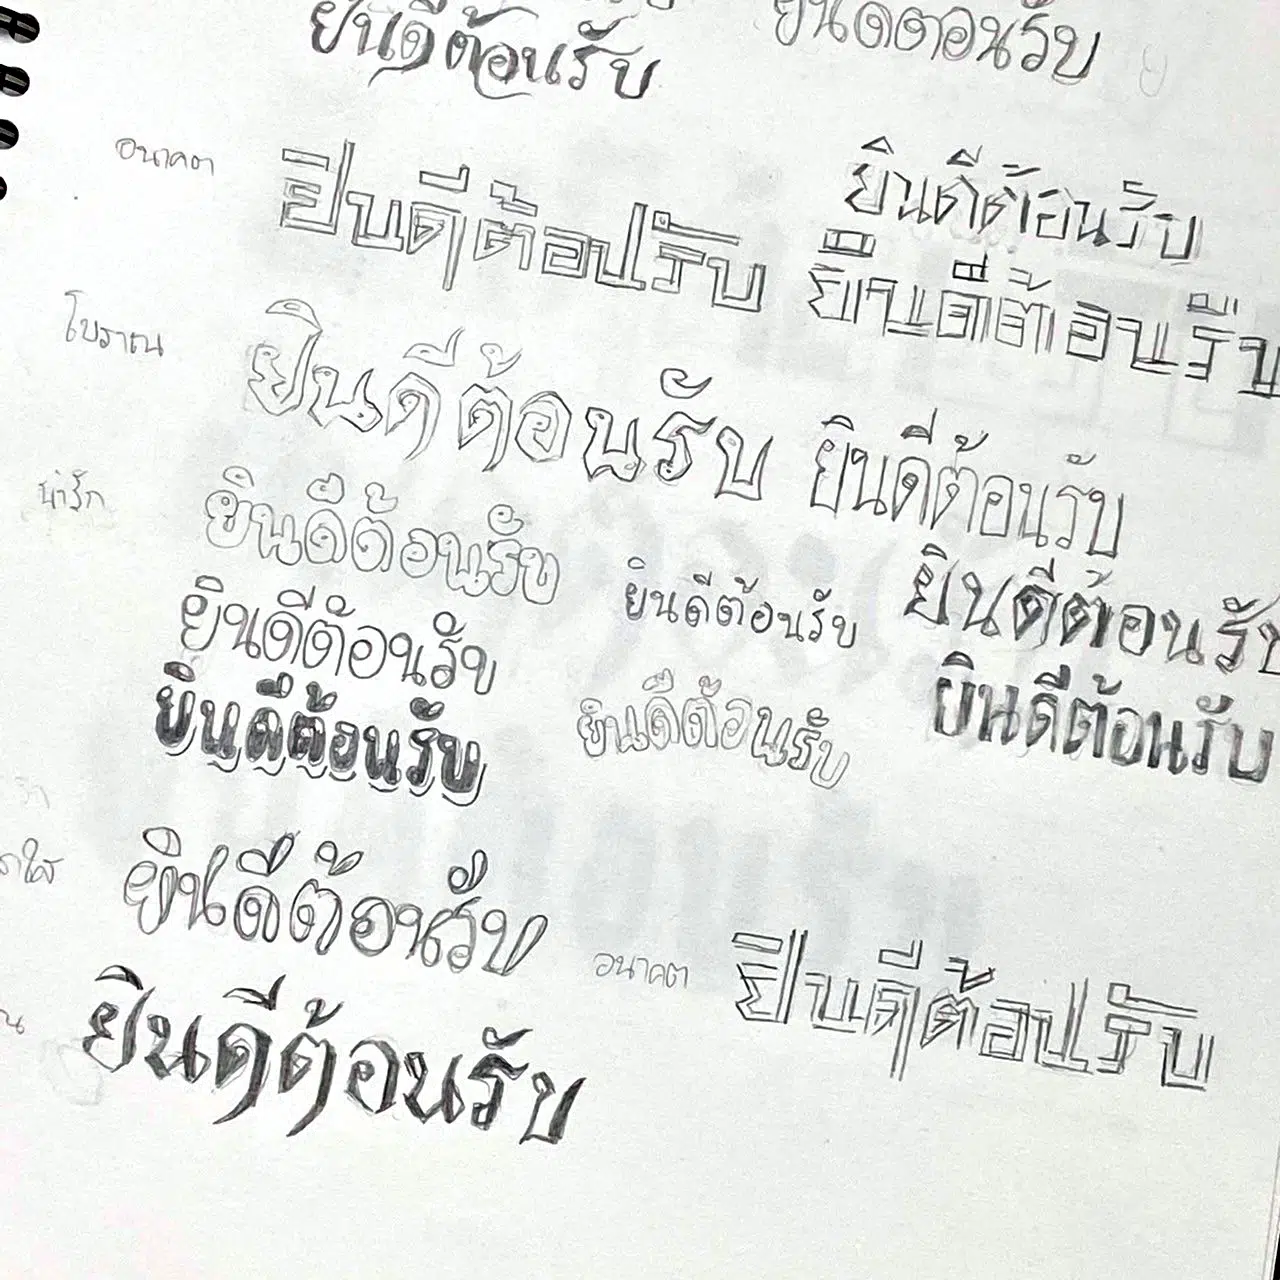 ยินดีต้อนรับ
ยินดีต้อนรับ
อนาคต
ยินดีต้อนรับ
ยินดีต้อนรับ
ยินดีต้อนรับ
โบราณ
ยินดีต้อนรับ
ยินดีต้อนรับ
น่ารัก
ยินดีต้อนรับ
ยินดีต้อนรับ
ยินดีต้อนรับ
ยินดีต้อนรับ
ยินดีต้อนรับ
ยินดีต้อนรับ
ยินดีต้อนรับ
ยินดีต้อนรับ
ยินดีต้อนรับ
อนาคต
ยินดีต้อนรับ
ยินดีต้อนรับ